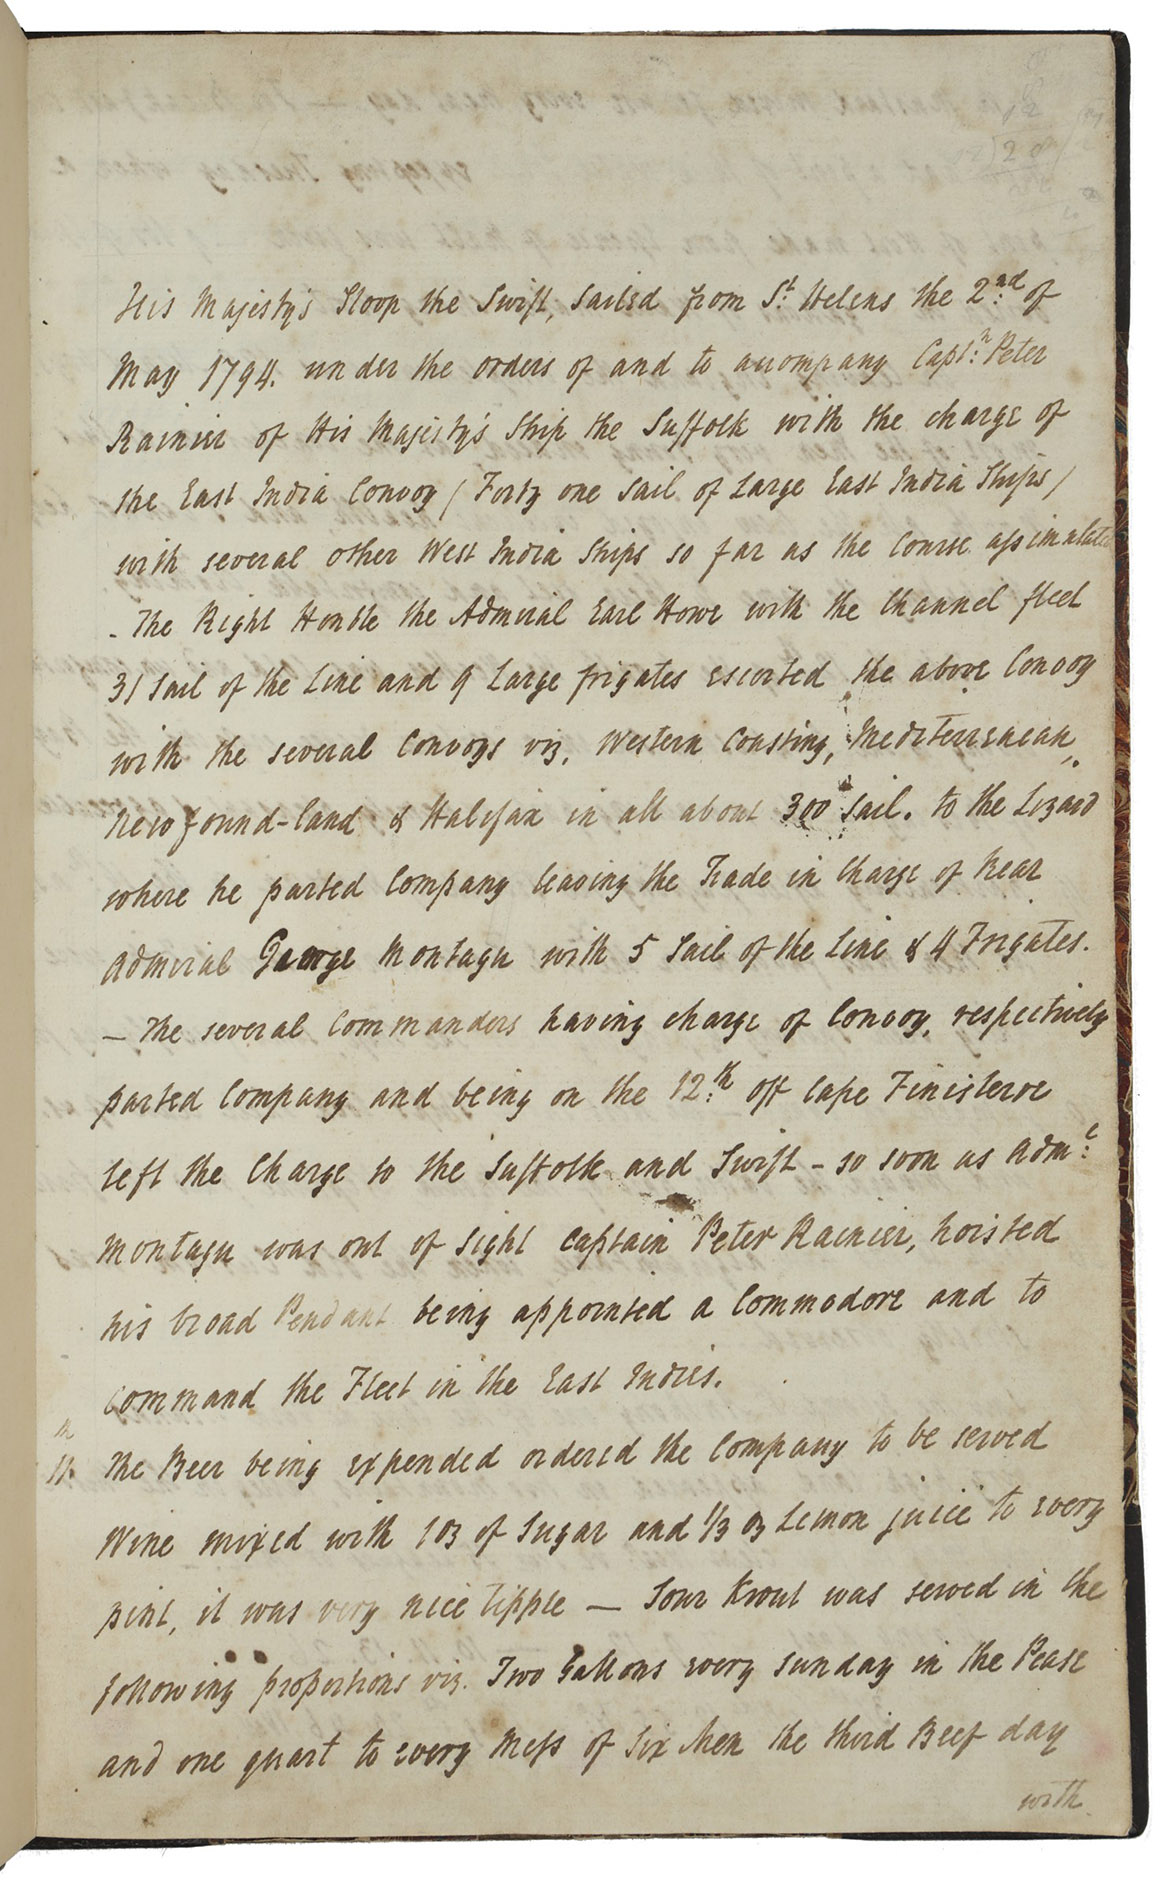 His Majesty's Sloop the Swift, sailed from St. Helens the 2nd. of
May 1794. under the orders of and to accompany Captn. Peter
Rainier of His Majesty's Ship the Suffolk with the charge of
the East India Convoy / Forty one Sail of Large East India Ships /
with several other West India Ships so far as the Course assimalated
- The Right Honble the Admiral Earl Howe with the Channel fleet
31 Sail of the Line and 9 Large frigates escorted the above Convoy
with the several Convoys viz, Western Coasting, Mediterrenean,
Newfound-land & Halifax in all about 300 Sail. to the Lizard
where he parted Company leaving the Trade in Charge of Rear
Admiral George Montagu with 5 Sail of the Line & 4 Frigates.
— The several Commanders having charge of Convoy, respectively
parted Company and being on the 12.th off Cape Finisterre
left the Charge to the Suffolk and Swift - so soon as Adml.
Montagu was out of sight Captain Peter Rainier, hoisted
his broad Pendant being appointed a Commodore and to
command the Fleet in the East Indies.
The Beer being expended ordered the Company to be served
Wine mixed with 1 oz of Sugar and 1/3 oz Lemon juice to every
pint, it was very nice tipple — Sour Krout was served in the
following proportions viz. Two Gallons every Sunday in the Pease
and one quart to every Mess of Six Men the third Beef day
with